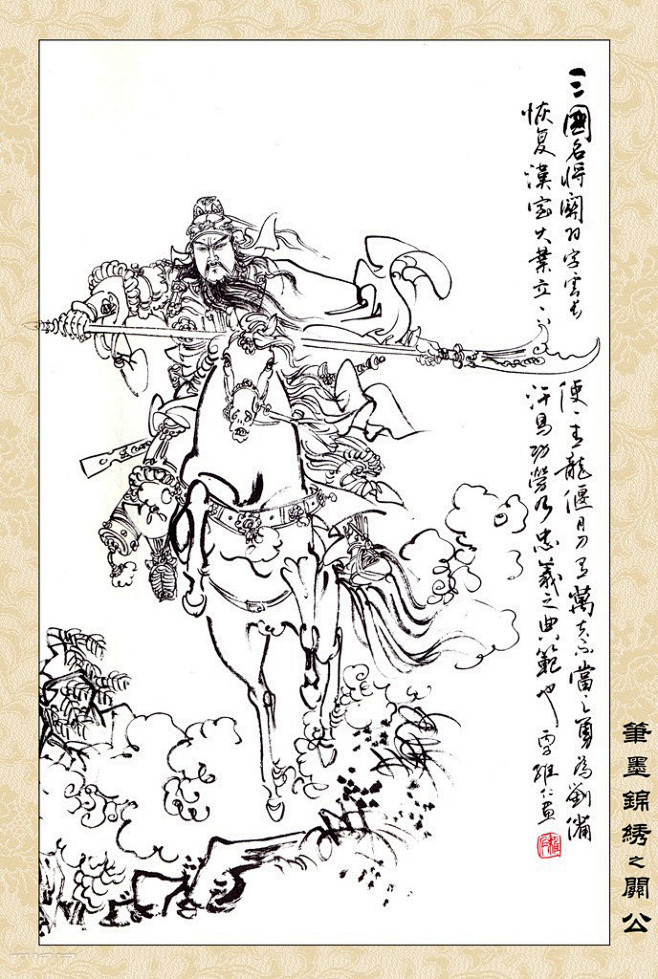 三國名将關羽字雲长使青龍偃月刀有萬夫當之勇為劉備
恢复漢室大業立汗馬功勞乃忠義之典範也
筆墨錦绣之關公